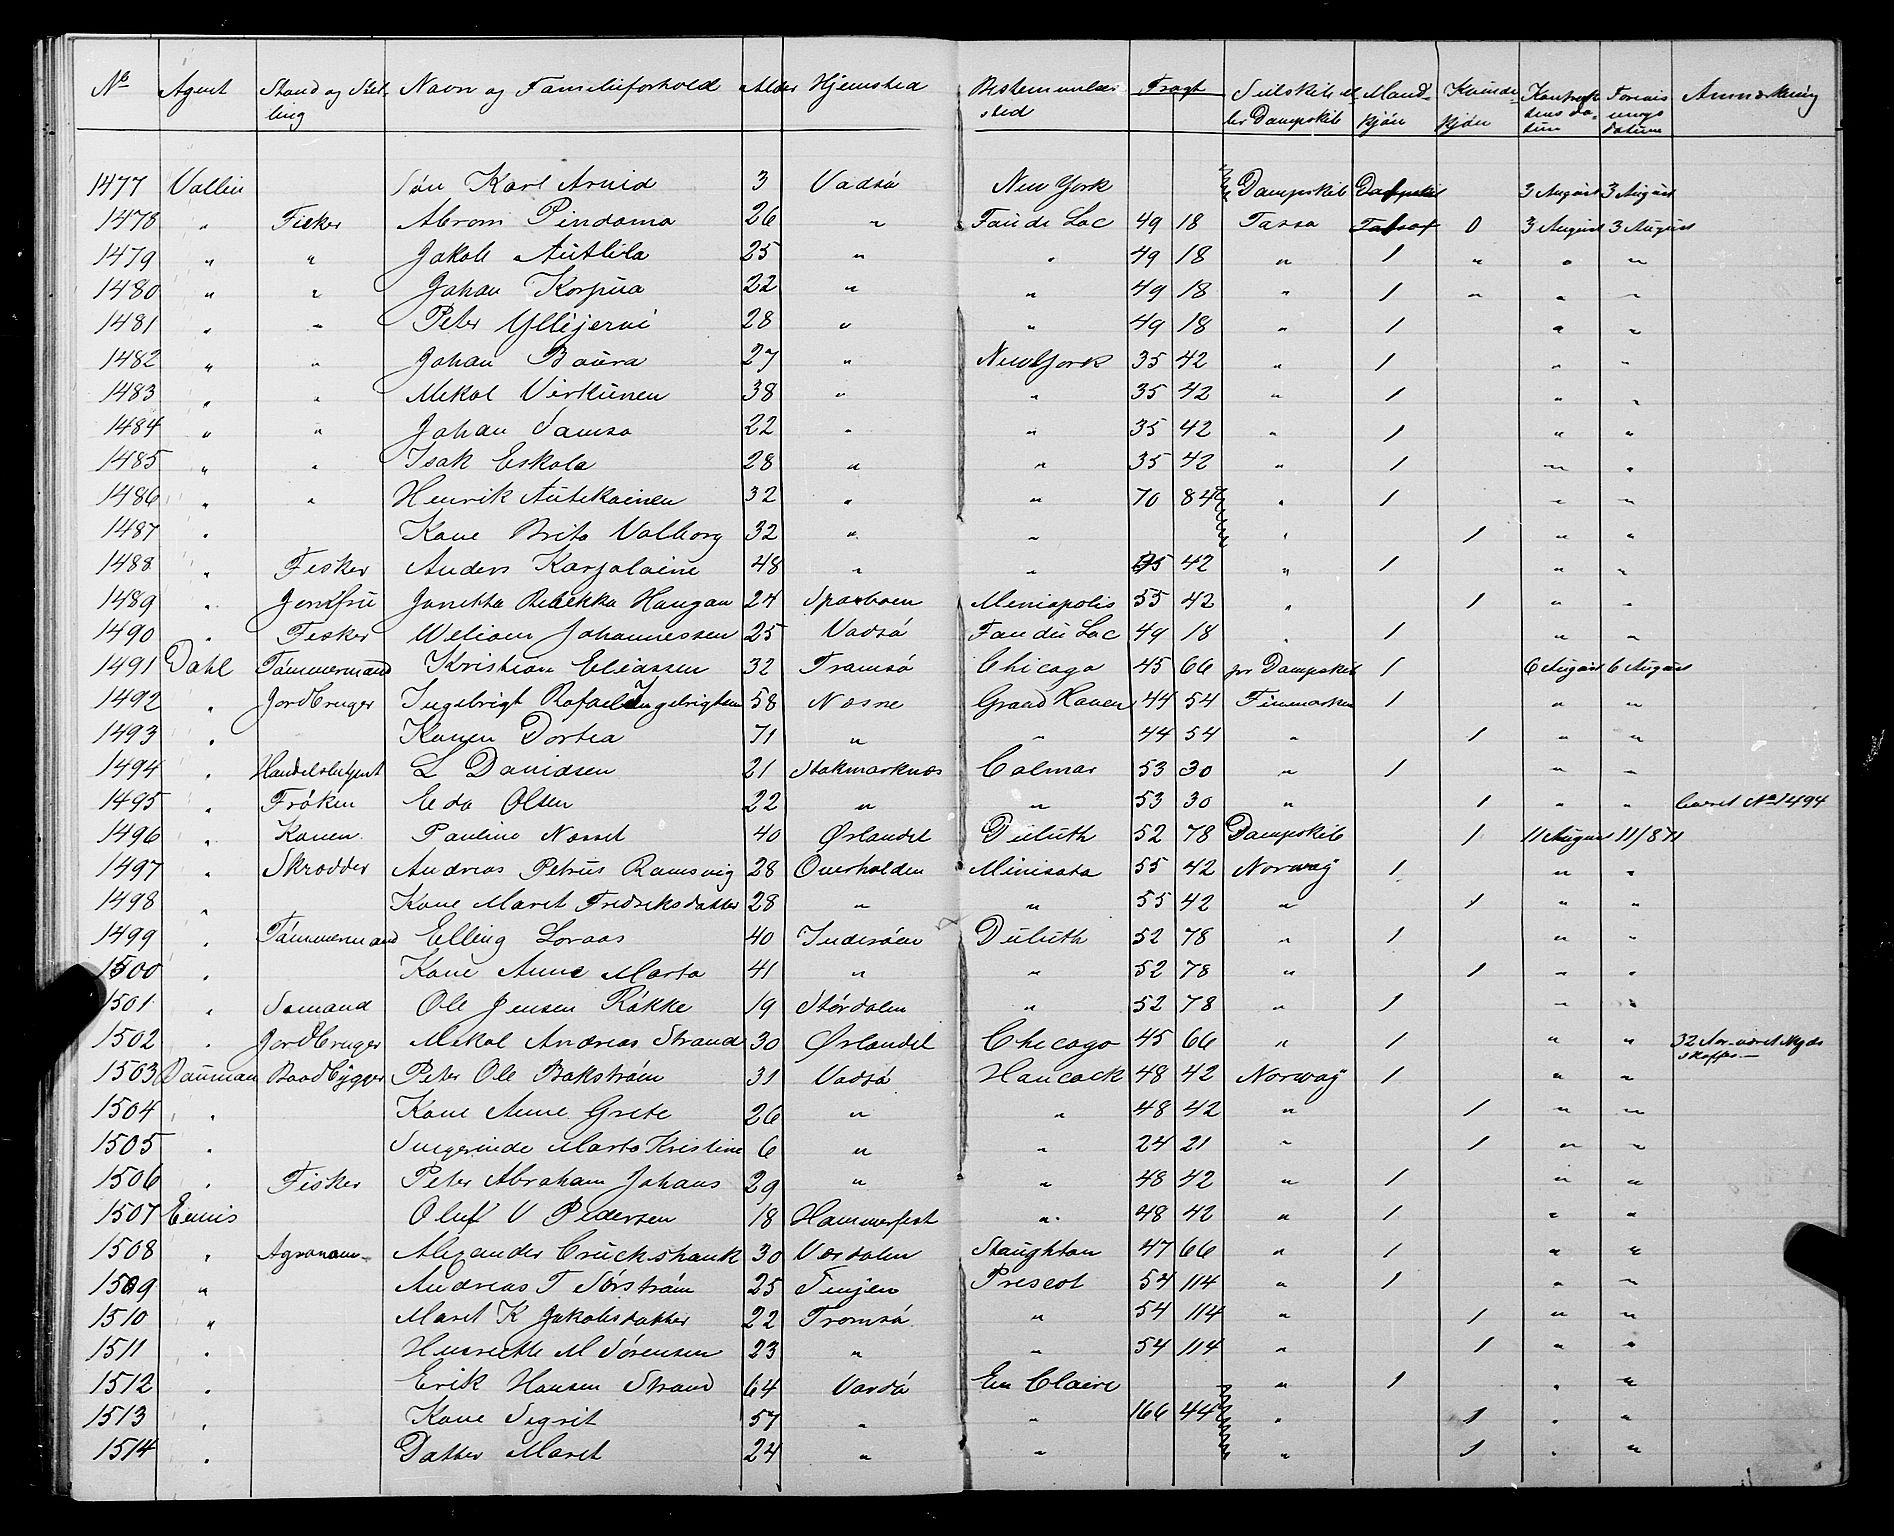 No Agent Stand og Stilling Navn og Familieforhold Alder Hjemsted Bestemmelsessted Fragt Seilskib eller Dampskib Mandkjön Kvindekjön Kontraktens datum Forevisnings datum Anmærkning
1477 Vollin Sön Karl Arvid 3 Vadsö New York Dampskib 3 August 3 August
1478 " Fisker Abram Pindama 26 " Fau du Lac 49 18 Tassa 0 3 August 3 August
1479 " " Jakob Autlila 25 " " 49 18 " 1 " " "
1480 " " Johan Korpua 22 " " 49 18 " 1 " " "
1481 " " Peter Yllijervi 28 " " 49 18 " 1 " "
1482 " " Johan Baura 27 " New York 35 42 " 1 " "
1483 " " Mekal Virkunen 38 " " 35 42 " 1 " "
1484 " " Johan Samsa 22 " " 35 42 " 1 " "
1485 " " Isak Eskola 28 " " 35 42 " 1 " "
1486 " " Henrik Autikainen 32 " " 70 84 " 1 " "
1487 " Kone Brita Valborg 32 " " " 1 " "
1488 " Fisker Anders Karjalaine 48 " " 35 42 " 1 " "
1489 " Jomfru Janetta Rebekka Haugan 24 Sparboen Meniapolis 55 42 " 1 " "
1490 " Fisker Weliam Johannessen 25 Vadsö Fau du Lac 49 18 " 1 " "
1491 Dahl Tömmermand Kristian Eliassen 32 Tramsö Chicago 45 66 pr Dampskib 1 6 August 6 August
1492 " Jordbruger Ingebrigt Rafael Ingebrigtsen 58 Næsne Grand Haven 44 54 Finmarken 1 " "
1493 " Konen Dortea 71 " " 44 54 " 1 " "
1494 " Handelsbetjent L Davidsen 21 Stokmarknæs Calmar 53 30 " 1 " "
1495 " Fröken Eda Olsen 22 " " 53 30 " 1 " " No 1494
1496 " Konen Pauline Nasset 40 Ørlandet Duluth 52 78 Dampskib 1 11 August 11/8 71
1497 " Skrædder Andreas Petrus Ramsvig 28 Overhalden Minisota 55 42 Norway 1 " "
1498 " Kone Maret Fredriksdatter 28 " " 55 42 " 1 " "
1499 " Tömmermand Elling Loraas 40 Inderöen Duluth 52 78 " 1 " "
1500 " Kone Anne Marta 41 " " 52 78 " 1 " "
1501 " Sømand Ole Jensen Rökke 19 Størdalen " 52 78 " 1 " "
1502 " Jordbruger Mekal Andreas Strand 30 Ørlandet Chicago 45 66 " 1 " "
1503 Dauman Baadbygger Peter Ole Bakström 31 Vadsö Hancock 48 42 Norway 1 " "
1504 " Kone Anne Grete 26 " " 48 42 " 1 " "
1505 " Marta Kristine 6 " " 24 21 " 1 " "
1506 " Fisker Peter Abraham Johans 29 " " 48 42 " 1 " "
1507 Ennis Oluf V Pedersen 18 Hammerfest " 48 42 " 1 " "
1508 " Agronom Alexander Cruckshank 30 Værdalen Staughton 47 66 " 1 " "
1509 " Andreas T Sörström 25 Senjen Prescot 54 114 " 1 " "
1510 " Maret K Jakobsdatter 22 Tromsö " 54 114 " 1 " "
1511 " Henrette M Sørensen 23 " " 54 114 " 1 " "
1512 " Erik Hansen Strand 64 Vardö Eau Claire " 1 " "
1513 " Kone Segrit 57 " " 166 44 " 1 " "
1514 " Datter Maret 24 " " " 1 " "